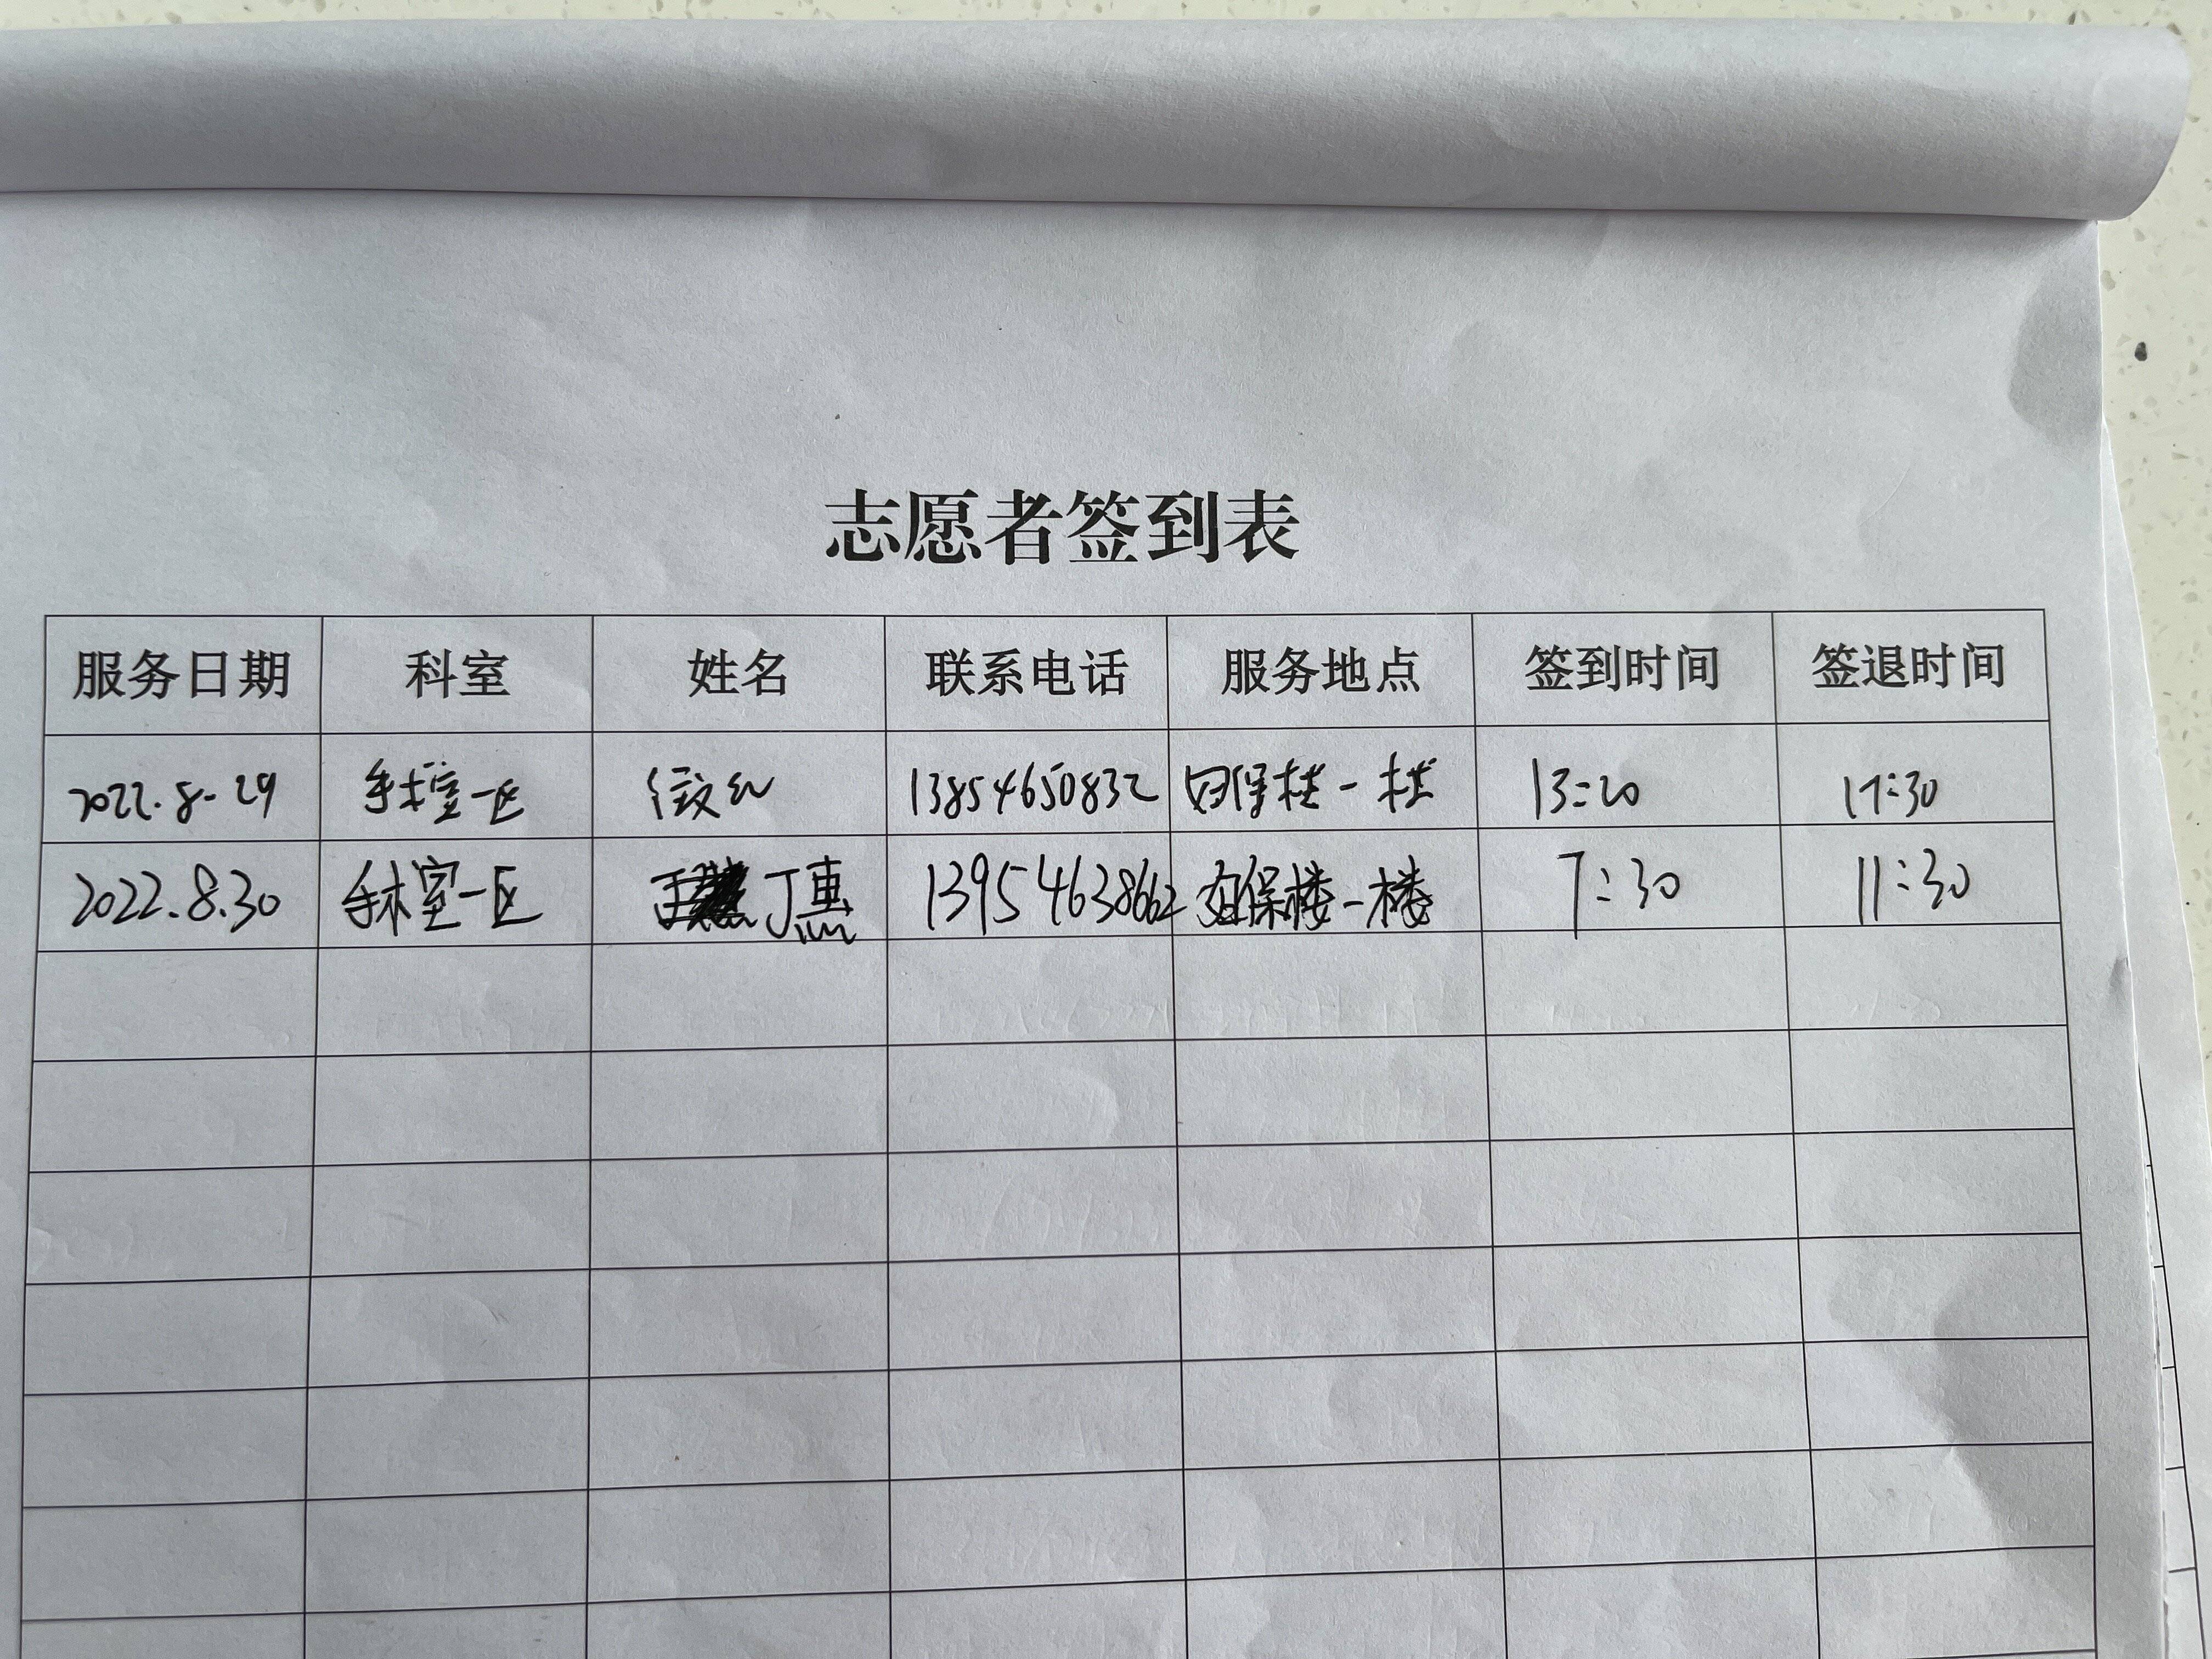 志愿者签到表
服务日期 科室 姓名 联系电话 服务地点 签到时间 签退时间
2022.8.29 手术室一区 13854650832 妇保楼一楼 13:20 17:30
2022.8.30 手术室一区 丁惠 13954638662 妇保楼一楼 7:30 11:30